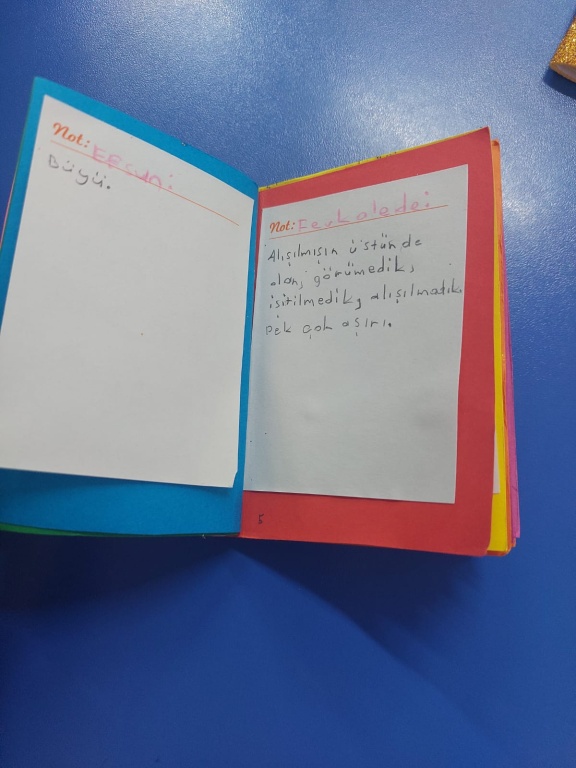 Not: Efsun:
Büyü.
Not: Fevkalade:
Alışılmışın üstünde
olan, görümedik,
işitilmedik, alışılmatık
pek çok aşırı.
5